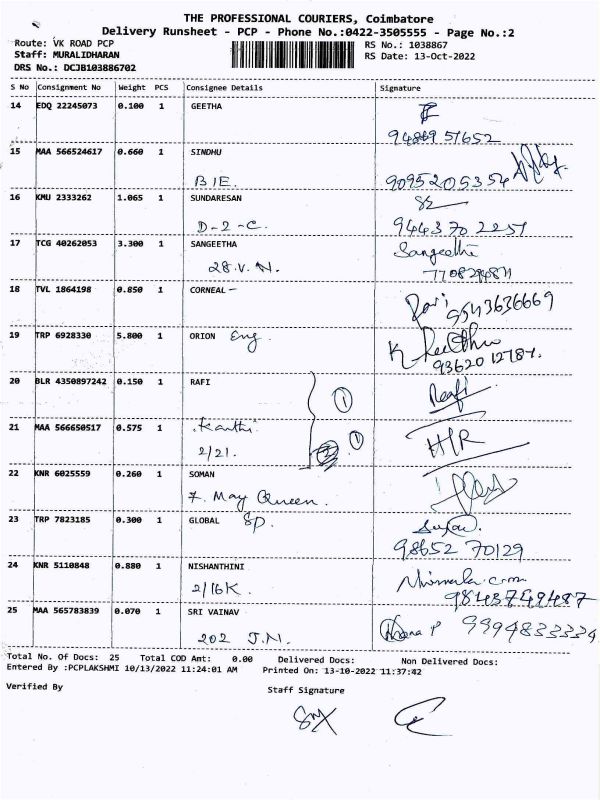 THE PROFESSIONAL COURIERS, Coimbatore
Delivery Runsheet - PCP - Phone No.:0422-3505555 - Page No.:2
Route: VK ROAD PCP RS No.: 1038867
Staff: MURALIDHARAN RS Date: 13-Oct-2022
DRS No.: DCJB103886702
S No Consignment No Weight PCS Consignee Details Signature
14 EDQ 22245073 0.100 1 GEETHA
94869 51652
15 MAA 566524617 0.660 1 SINDHU
B1E. 9095205354
16 KMU 2333262 1.065 1 SUNDARESAN
D-2-C. 94437 02257
17 TCG 40262053 3.300 1 SANGEETHA Sangeetha
28.V.N.
18 TVL 1864198 0.850 1 CORNEAL -
9543636669
19 TRP 6928330 5.800 1 ORION Eng.
93620 12787.
20 BLR 4350897242 0.150 1 RAFI 1 Raafi
21 MAA 566650517 0.575 1 Kanthi 1
2/21. 2 H/R
22 KNR 6025559 0.260 1 SOMAN
7. May Queen.
23 TRP 7823185 0.300 1 GLOBAL SP.
98652 70129
24 KNR 5110848 0.880 1 NISHANTHINI
2/16K. 9843749487
25 MAA 565783839 0.070 1 SRI VAINAV
202 J.N. 9994833334
Total No. Of Docs: 25 Total COD Amt: 0.00 Delivered Docs: Non Delivered Docs:
Entered By :PCPLAKSHMI 10/13/2022 11:24:01 AM Printed On: 13-10-2022 11:37:42
Verified By Staff Signature